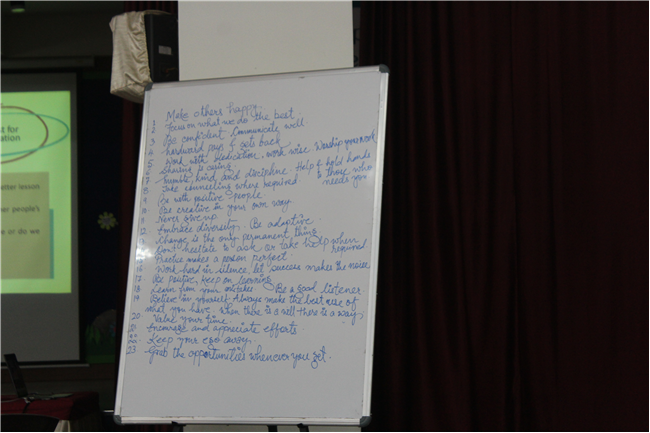 t for
ation
etter lesson
her people's
re or do we
Make others happy.
1 Focus on what we do the best
2 Be confident Communicate well
3 hardword pays & gets back
4 Work with dedication, work wise Worship your work
5 Sharing is caring
6 humble, kind and discipline Help & hold hands
7 Take counselling when required to those who
8 Be with positive people needs you
9 Be creative in your own way
10 Never give up
11 Embrace diversity, Be adaptive.
12 Change is the only permanent thing
Don't hesitate to ask or take help when
required
Practise makes a person perfect.
16 Work hard in silence, let success makes the noise
17 Be positive, keep on learning
18 Learn from your mistakes. Be a good listener
19 Believe in yourself Always make the best use of
what you have, when there is a will there is a way
20 Value your time.
21 Encourage and appreciate efforts
22 Keep your ego away.
23 Grab the opportunities whenever you get.